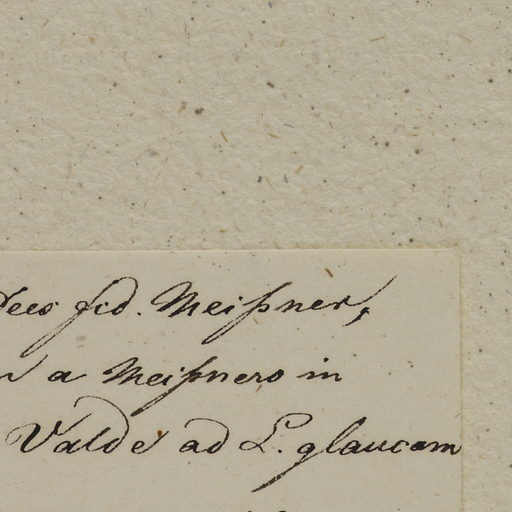 Nees fid. Meißner,
a Meißnero in
Valde ad L. glaucam